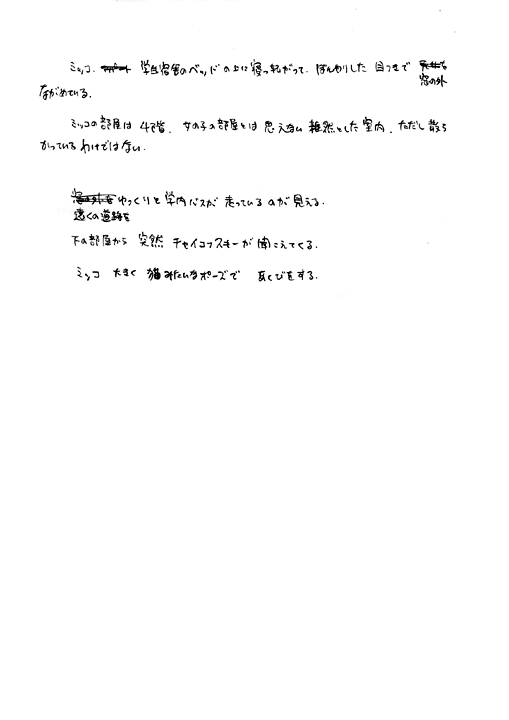 ミッコ、学生宿舎のベッドの上に寝っ転がって、ぼんやりした目つきで窓の外
ながめている。
ミッコの部屋は4階、女の子の部屋とは思えない雑然とした室内、ただし散ら
かっているわけではない。
遠くの道路をゆっくりと学内バスが走っているのが見える。
下の部屋から突然チャイコフスキーが聞こえてくる。
ミッコ 大きく猫みたいなポーズで あくびをする。